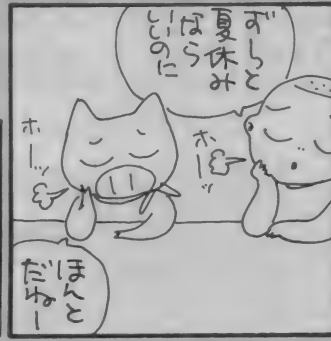 ずーっと
夏休み
なら
いいのに
ホーッ
ホーッ
ほんと
だねー